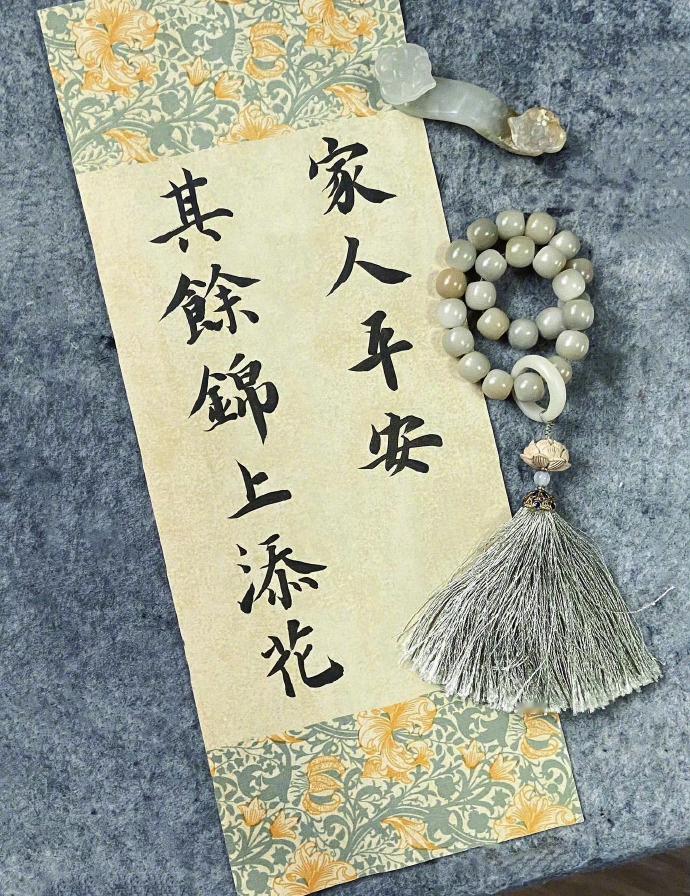 家人平安
其餘錦上添花